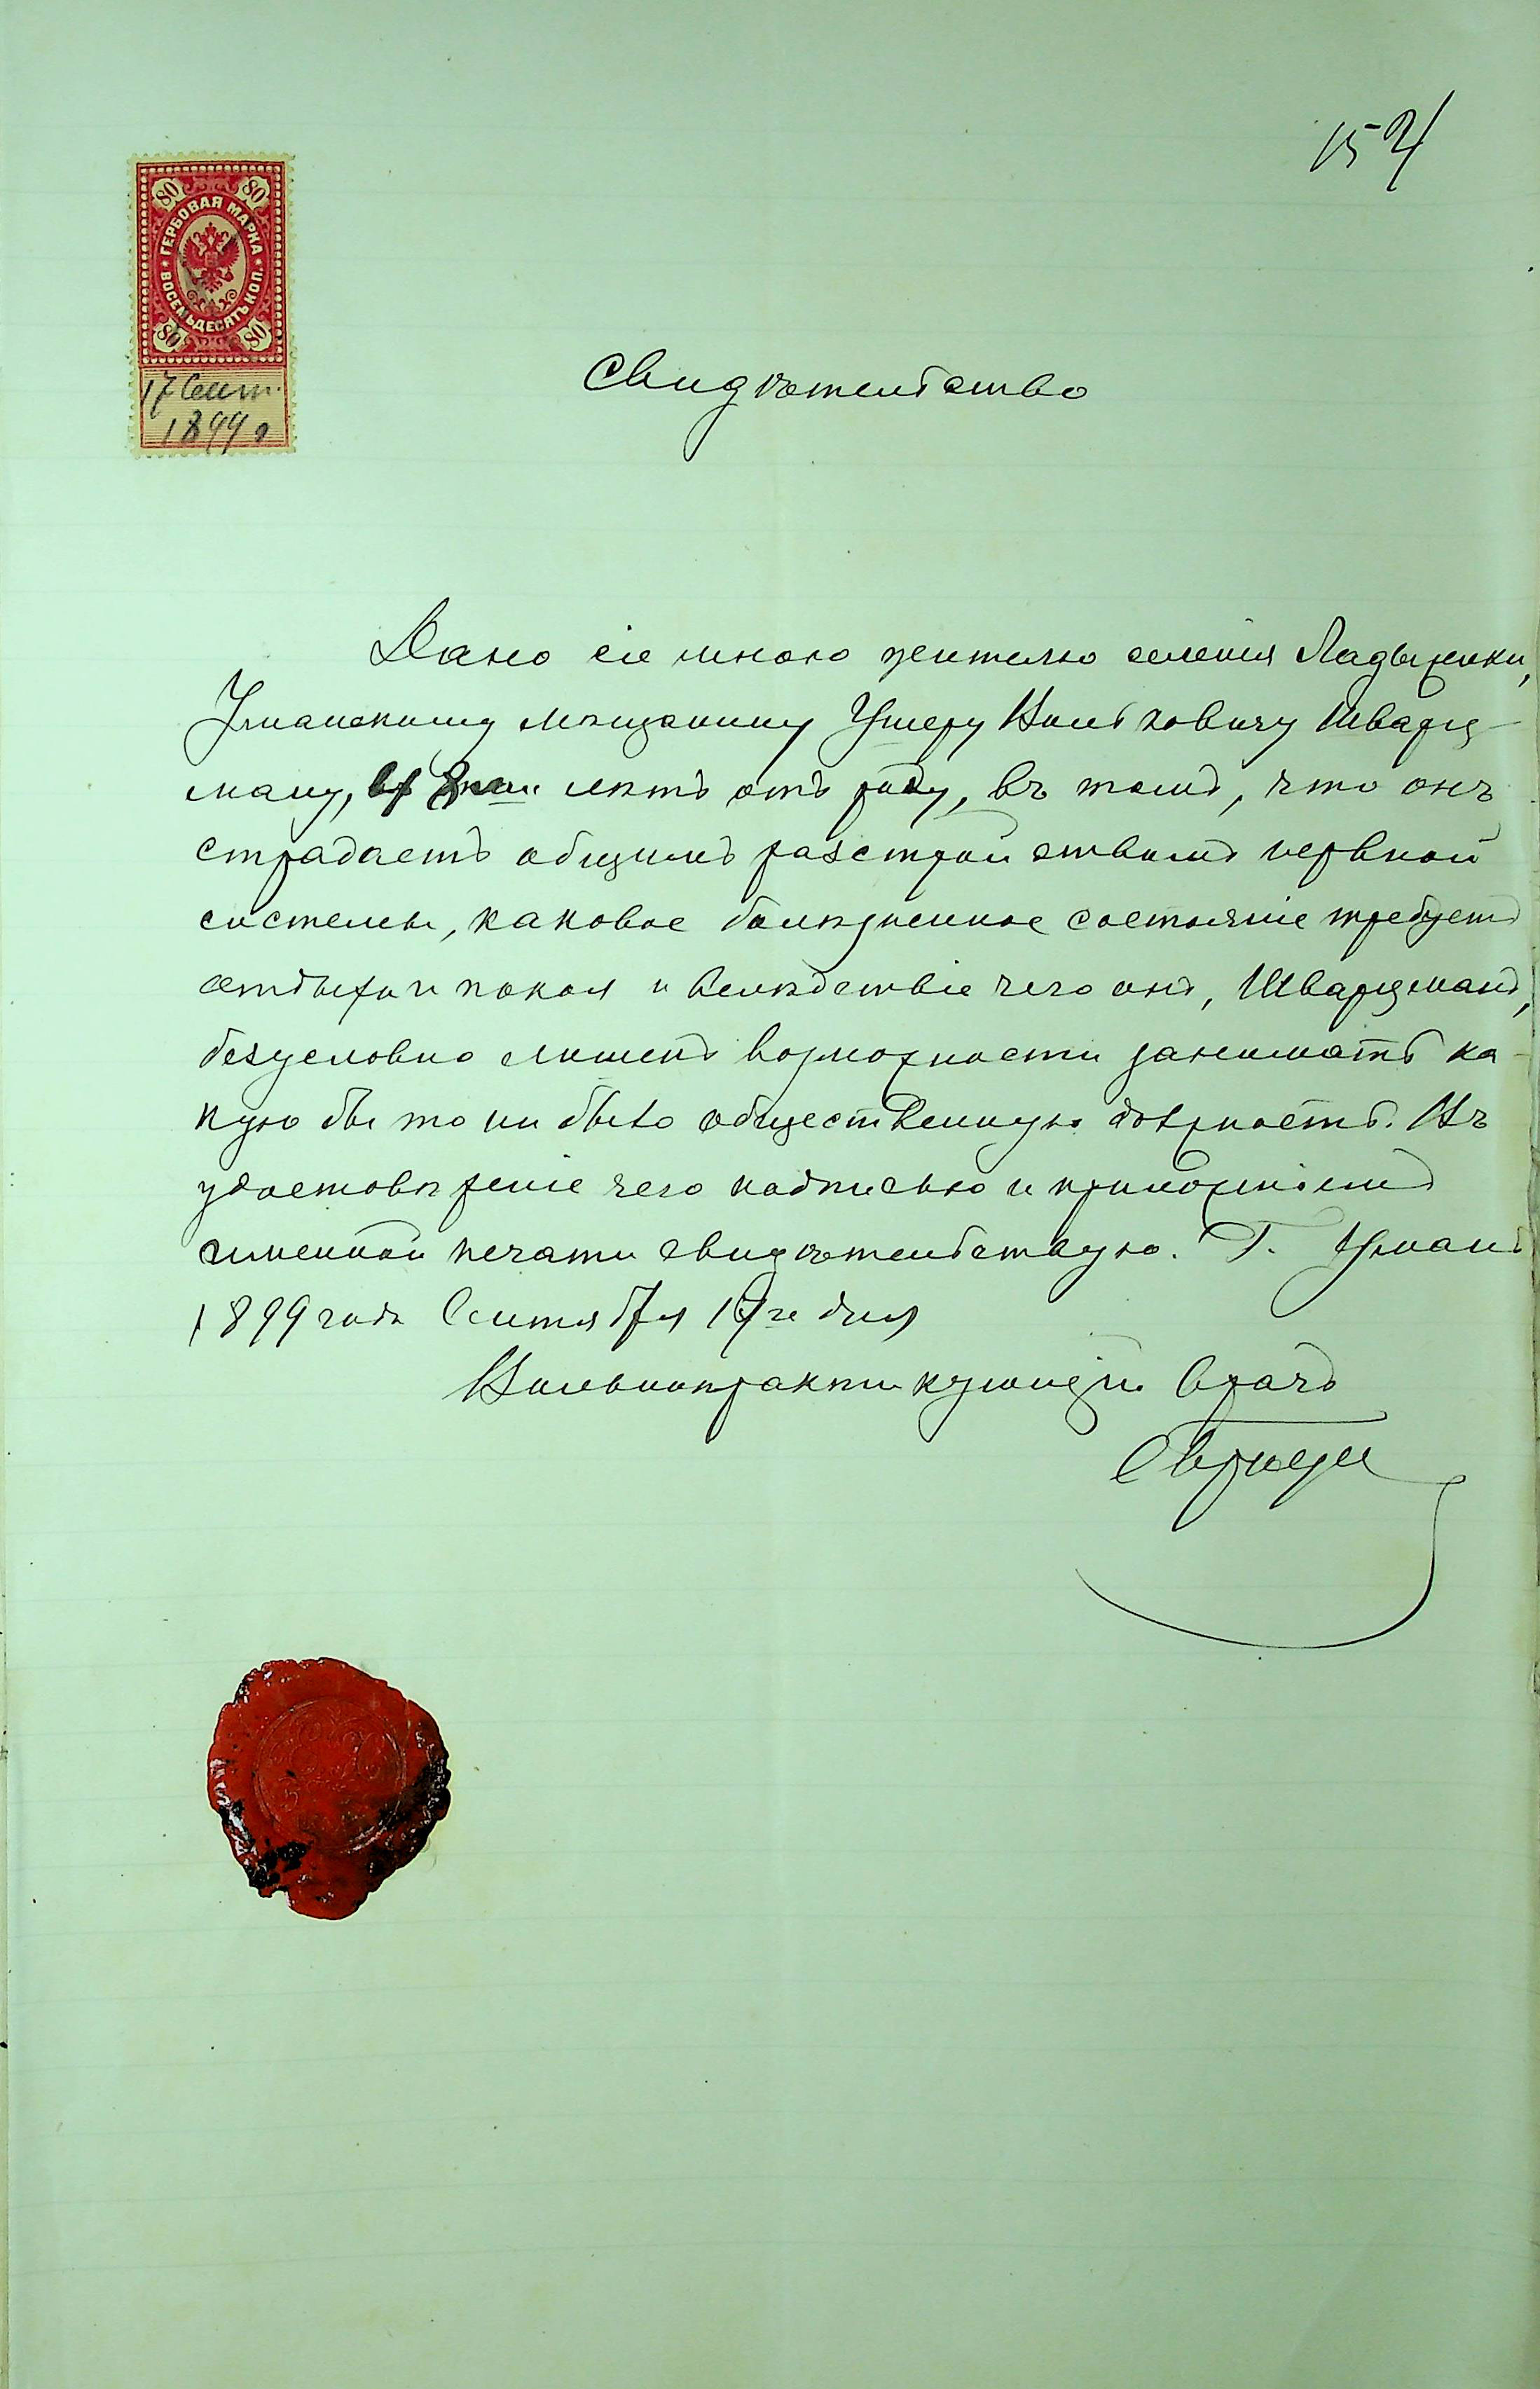 154
80 80
ГЕРБОВАЯ МАРКА
ВОСЕМЬДЕСЯТЪ КОП.
80 80
17 Сент.
1899 г
Свидѣтельство
Дано сіе мною жителю селенія Ладыжинки,
Уманскому мѣщанину Ушеру Вольковичу Шварц-
ману, лѣтъ отъ роду, въ томъ, что онъ
страдаетъ общимъ разстройствомъ нервной
системы, каковое болѣзненное состояніе требуетъ
отдыха и покоя и вслѣдствіе чего онъ, Шварцманъ,
безусловно лишенъ возможности занимать ка-
кую бы то ни было общественную должность. Въ
удостовѣреніе чего подписью и приложеніемъ
именной печати свидѣтельствую. Г. Умань
1899 года Сентября 17го дня
Вольнопрактикующій Врачъ